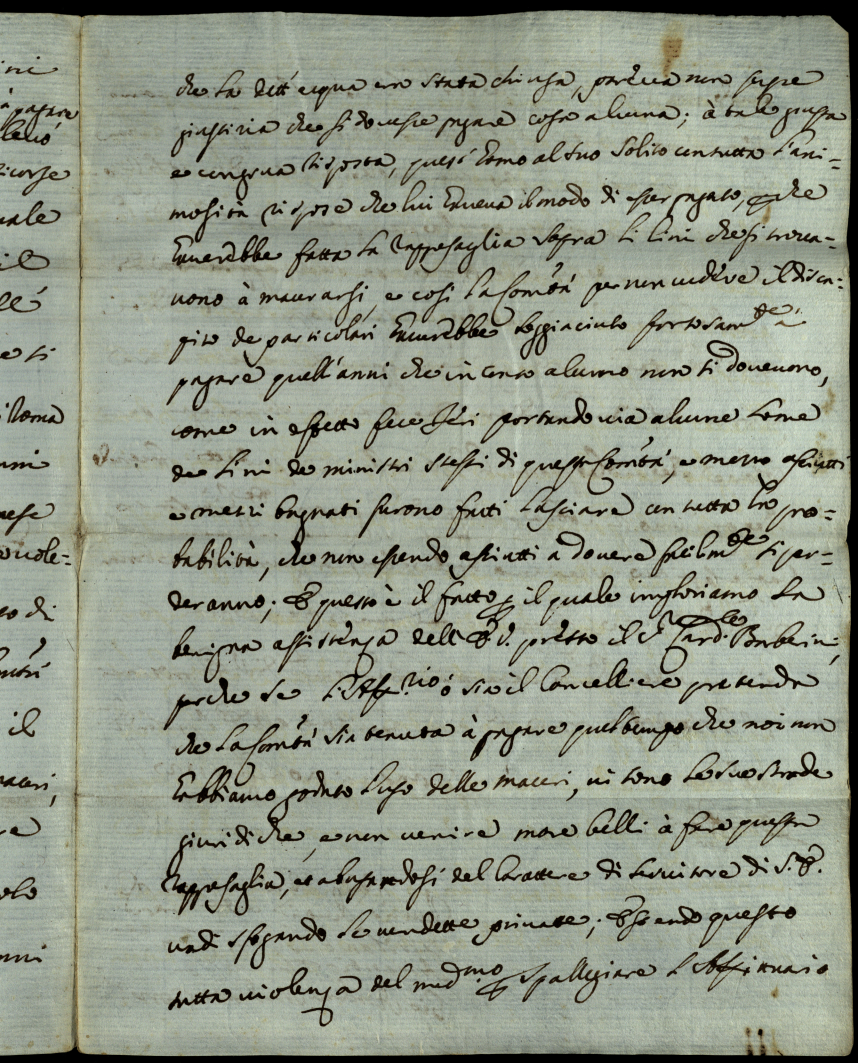 ini
à pagare
levò
ricorse
uale
il
lé
e si
i Roma
nni
nese
vole=
to di
il
maceri,
re
olo
nni
che la dett'acqua era stata chiusa, pareua non fusse
giustizia che si douesse pagare cosa alcuna; à tale giusta
e congrua risposta, quest'homo al suo solito con tutta l'ani=
mosità rispose che lui haueua il modo di esser pagato, e che
hauerebbe fatta la rappresaglia sopra li lini che si troua=
uono à macerarsi, e così la Com.tà per non uedere il disca=
pito de particolari hauerebbe soggiaciuto fortosam.te à
pagare quell'anni che in conto alcuno non si doueuono,
come in effetto fece hieri portando uia alcune some
de lini de ministri stessi di questa Com.tà, e mezzi asciutti
e mezzi bagnati furono fatti lasciare con tutta la pro=
babilità, che non essendo asciutti a douere facilm.te si per=
deranno; E questo è il fatto per il quale imploriamo la
benigna assistenza dell'E. V. presso il S.r Card.le Barberini,
perche se l'Aff.rio ò sia il Cancelliere pretende
che la Com.tà sia tenuta à pagare quel tempo che noi non
habbiamo goduto l'uso delle maceri, ui sono le sue strade
giuridiche, e non uenire more belli à fare queste
rappresaglie, et abusandosi del Carattere di seruitore di S. E.
uadi sfogando le uendette priuate; Essendo questo
tutta uiolenza del med.mo per spalleggiare l'Affittuario